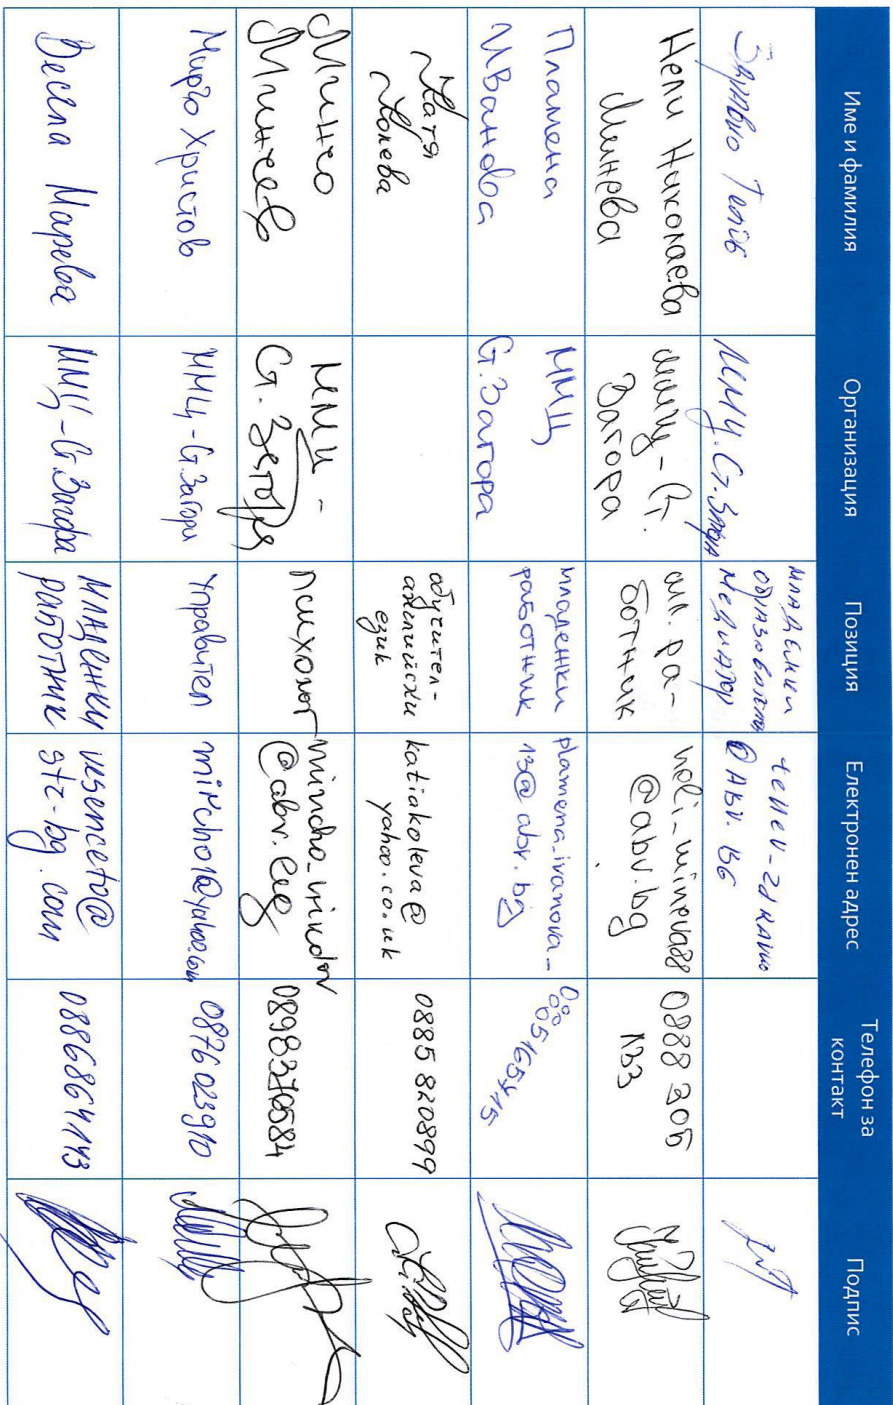 Име и фамилия
Организация
Позиция
Електронен адрес
Телефон за
контакт
Подпис
ММЦ. Ст. Загора
младежки
медиатор
@ABV.BG
Нели Николаева
Минева
ММЦ - Ст.
Загора
мл. ра-
ботник
neli_mineva88
@abv.bg
0888 305
133
Пламена
Иванова
ММЦ
Ст. Загора
младежки
работник
plamena_ivanova_
13@abv.bg
Катя
Колева
обучител-
английски
език
katiakoleva@
yahoo.co.uk
0885 820899
Минчо
Минчев
ММЦ -
Ст. Загора
психолог
@abv.bg
0898370584
Мирчо Христов
ММЦ - Ст. Загора
Управител
mircho1@yahoo.com
0876023910
Весела Марева
ММЦ - Ст. Загора
младежки
работник
vesenceto@
stz-bg.com
0886864143